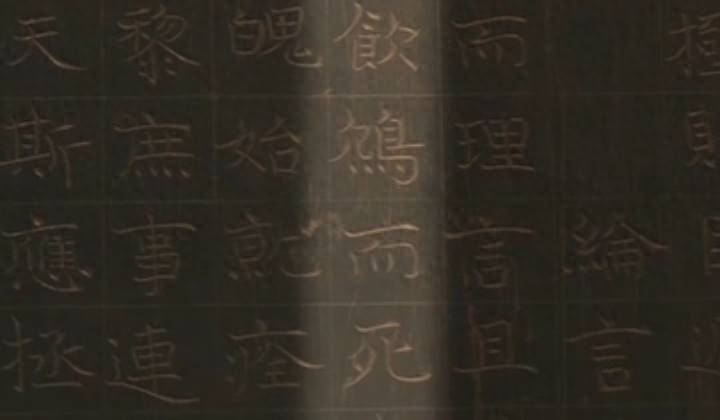 綸言
而理言且
飲鴆而死
魄始就痊
黎庶事連
天斯應拯